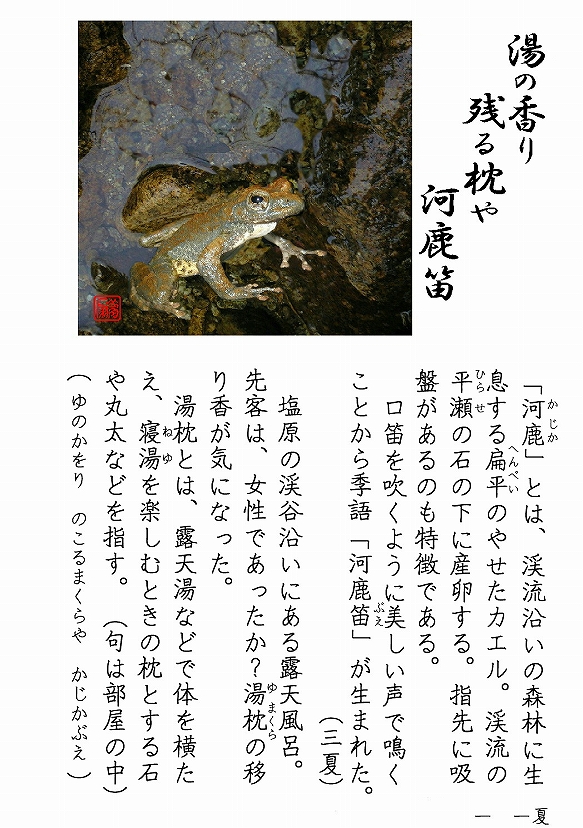 湯の香り
残る枕や
河鹿笛
「河鹿」とは、渓流沿いの森林に生
息する扁平のやせたカエル。渓流の
平瀬の石の下に産卵する。指先に吸
盤があるのも特徴である。
口笛を吹くように美しい声で鳴く
ことから季語「河鹿笛」が生まれた。
(三夏)
塩原の渓谷沿いにある露天風呂。
先客は、女性であったか?湯枕の移
り香が気になった。
湯枕とは、露天湯などで体を横た
え、寝湯を楽しむときの枕とする石
や丸太などを指す。 (句は部屋の中)
(ゆのかをり のこるまくらや かじかぶえ)
かじか
へんぺい
ひらせ
ぶえ
ゆまくら
ねゆ
一 一夏